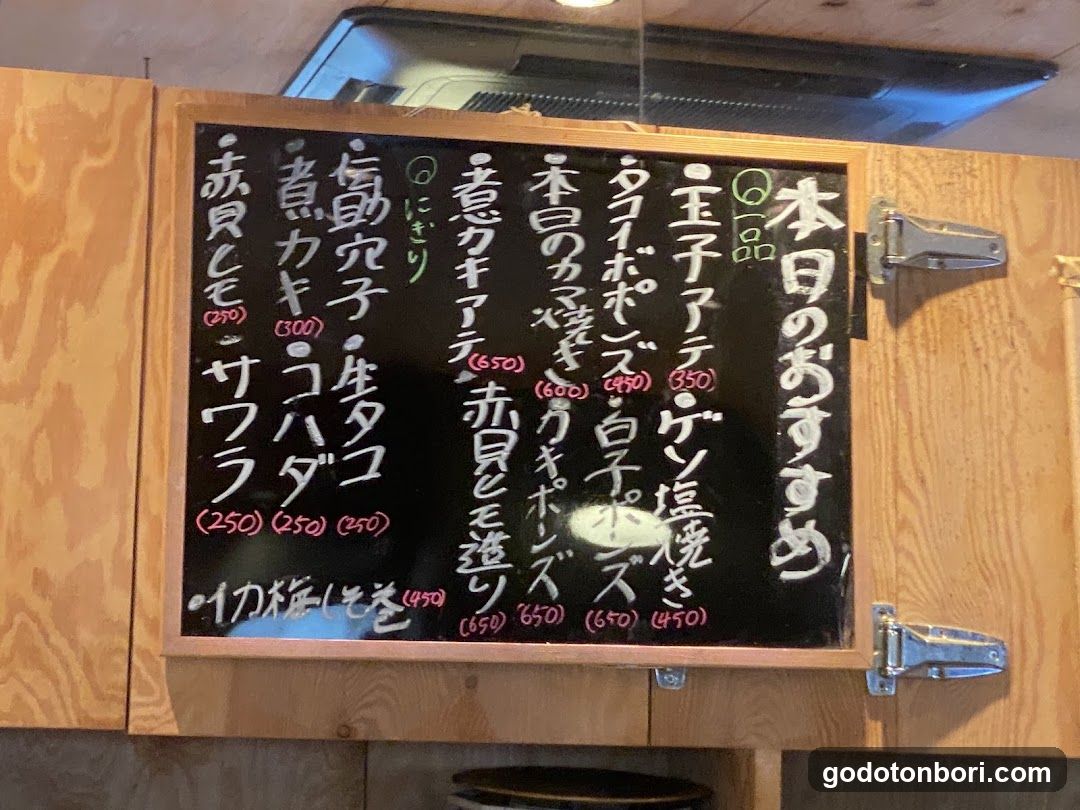 本日のおすすめ
◎一品
・玉子アテ(350)
・ゲソ塩焼き(450)
・タコイボポンズ(450)
・白子ポンズ(650)
・本日のカマ焼き(600)
・カキポンズ(650)
・煮カキアテ(650)
・赤貝ヒモ造り(650)
◎にぎり
・伝助穴子
・生タコ(250)
・煮カキ(300)
・コハダ(250)
・赤貝ヒモ(250)
・サワラ(250)
梅しそ巻(450)
godotonbori.com